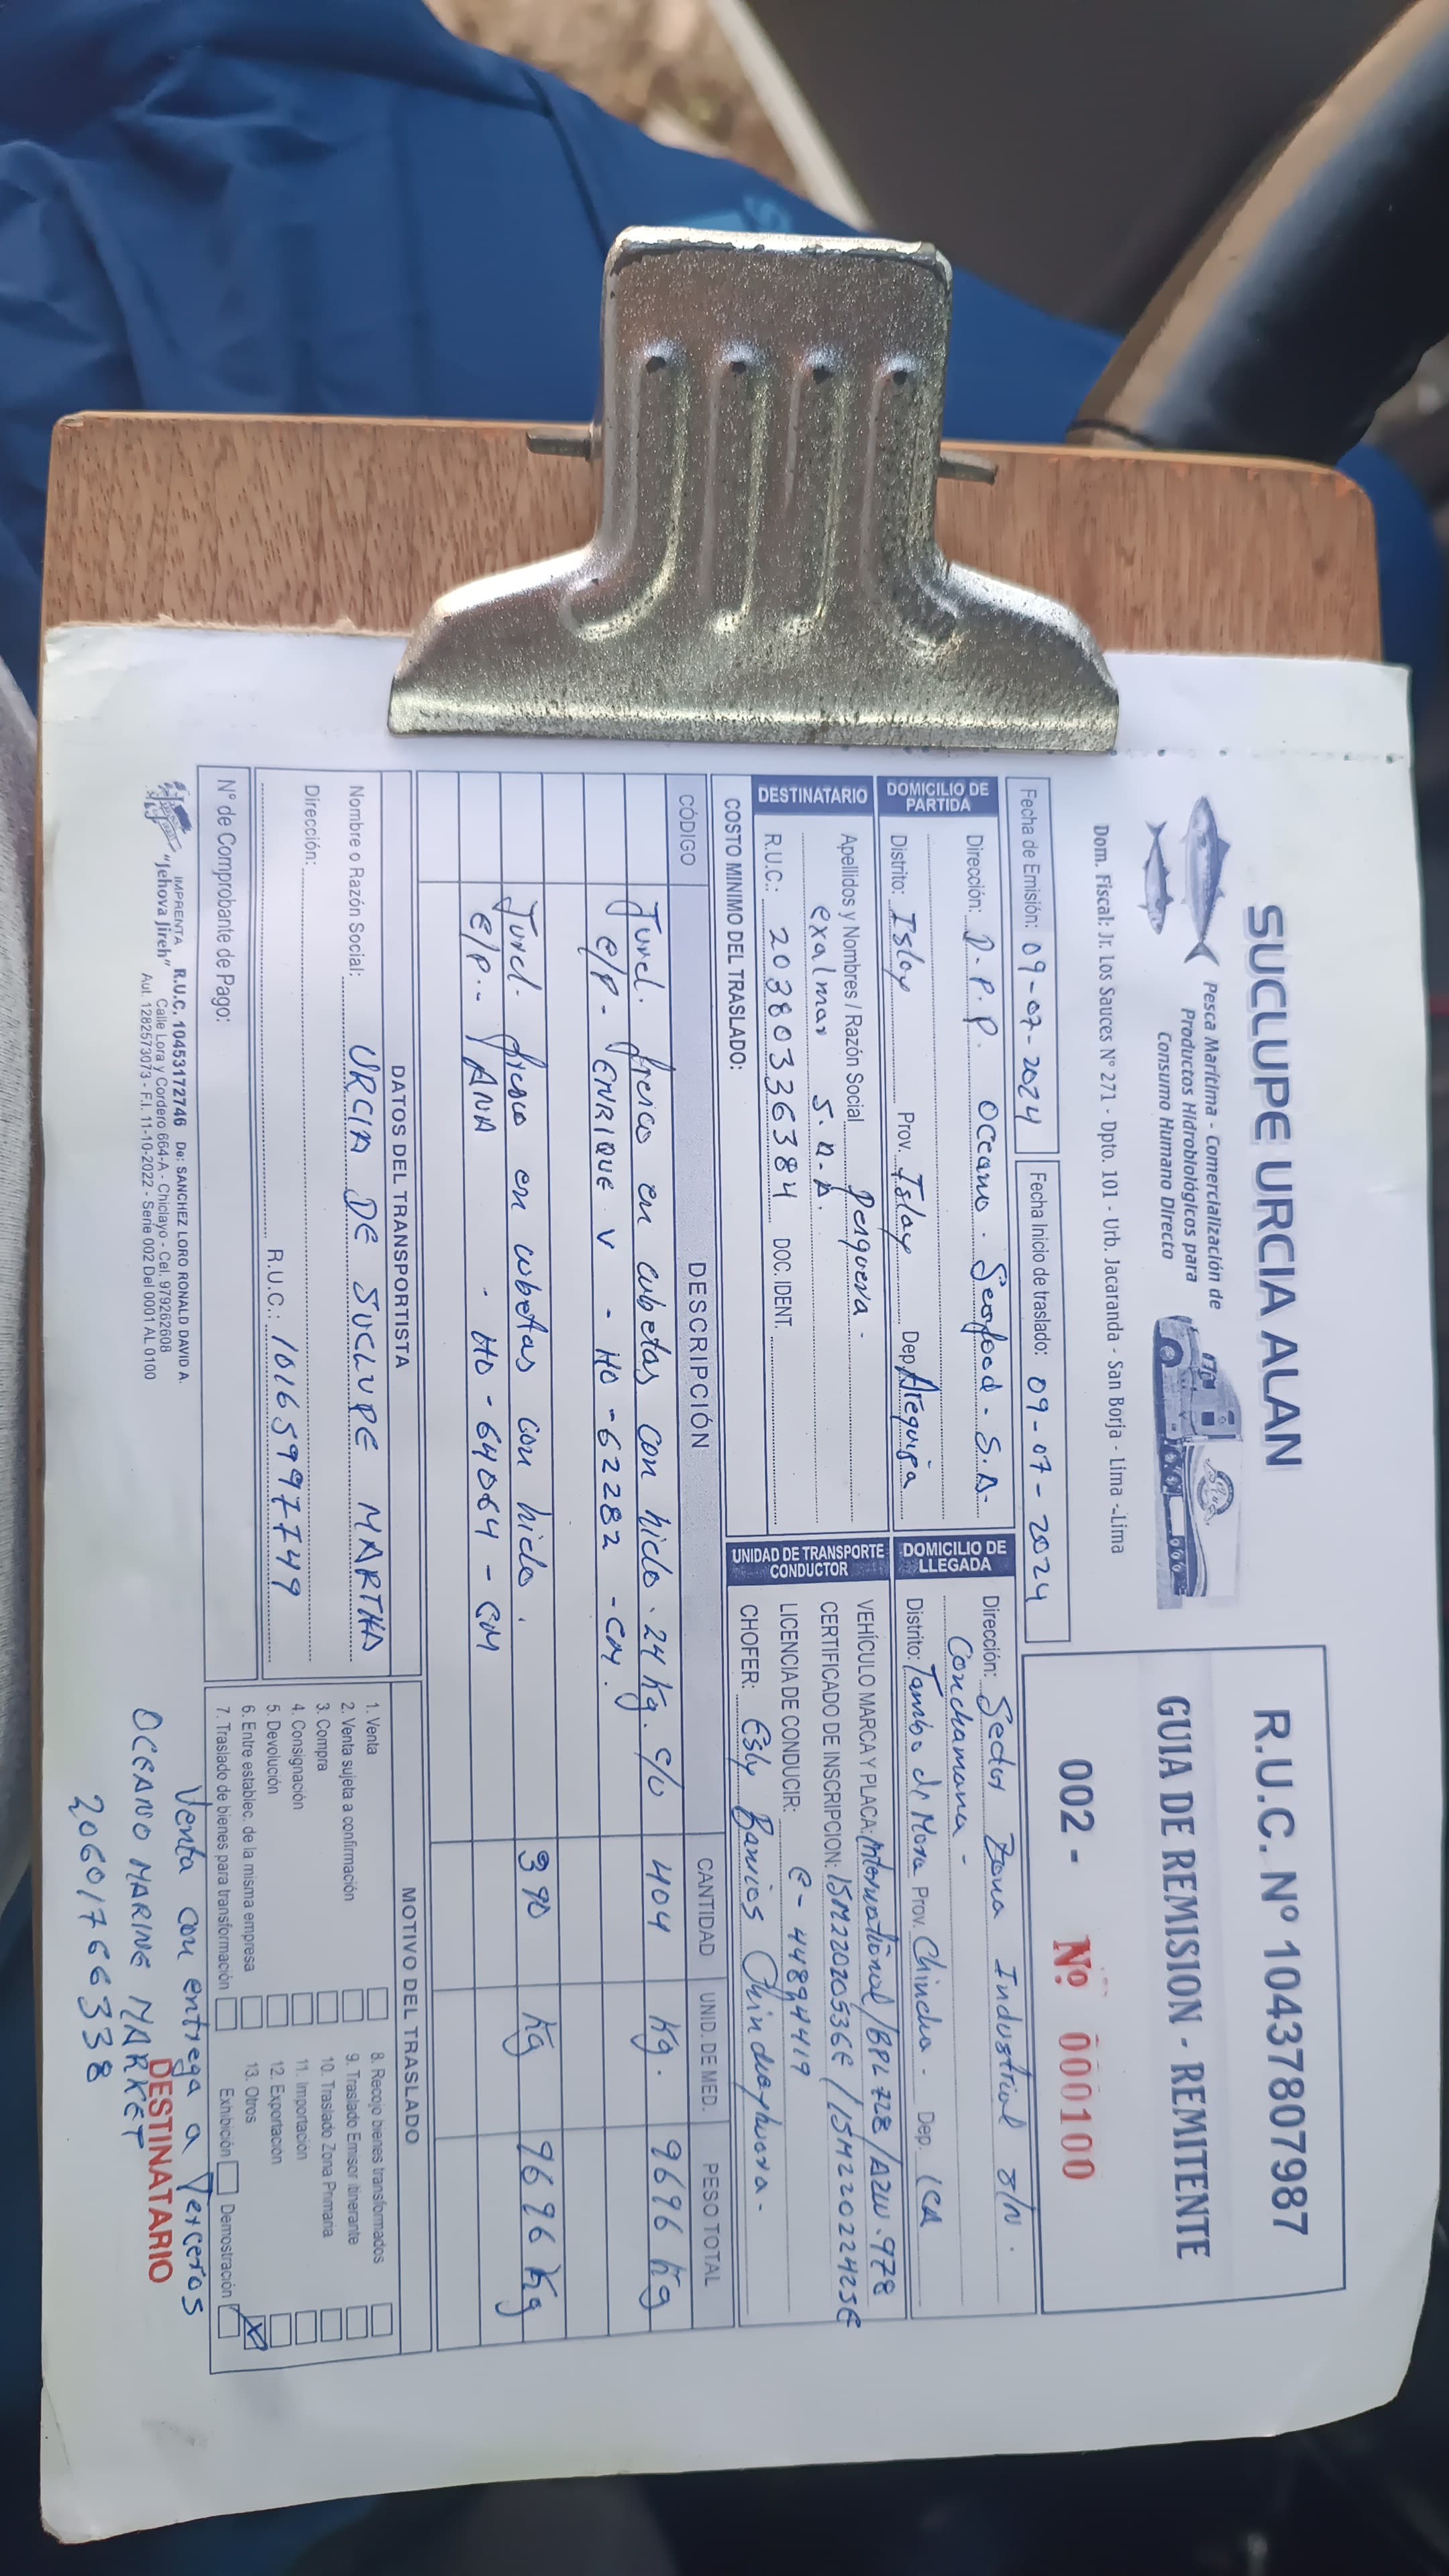 SUCLUPE URCIA ALAN
Pesca Marítima - Comercialización de
Productos Hidrobiológicos para
Consumo Humano Directo
Dom. Fiscal: Jr. Los Sauces Nº 271 - Dpto. 101 - Urb. Jacaranda - San Borja - Lima - Lima
R.U.C. Nº 10437807987
GUIA DE REMISION - REMITENTE
002 - Nº 000100
Fecha de Emisión: 09-07-2024
Fecha Inicio de traslado: 09-07-2024
DOMICILIO DE PARTIDA
Dirección: D.P.P. Oceano. Seafood - S.A.
Distrito: Islay Prov. Islay Dep. Arequipa
DOMICILIO DE LLEGADA
Dirección: Sector Zona Industrial s/n.
Canchamana -
Distrito: Tambo de Mora Prov. Chincha - Dep. ICA
DESTINATARIO
Apellidos y Nombres / Razón Social Pesquera -
exalmar S.A.A.
R.U.C.: 20380336384 DOC. IDENT.
UNIDAD DE TRANSPORTE CONDUCTOR
VEHÍCULO MARCA Y PLACA: International / BPL 728 / AZW. 978
CERTIFICADO DE INSCRIPCION: 15M22020536E / 15M22022425E
LICENCIA DE CONDUCIR: C - 44894419
CHOFER: Esly Barrios
COSTO MINIMO DEL TRASLADO:
CÓDIGO DESCRIPCIÓN CANTIDAD UNID. DE MED. PESO TOTAL
Jurel. fresco en cubetas con hielo. 24 kg. c/u 404 Kg. 9696 Kg
E/P - ENRIQUE V - HO - 62282 - CM.
Jurel. fresco en cubetas con hielo. Kg 9696 Kg
E/P.. ANA - HO - 64064 - CM
DATOS DEL TRANSPORTISTA
Nombre o Razón Social: URCIA DE SUCLUPE MARTHA
Dirección:
R.U.C.: 10165997749
Nº de Comprobante de Pago:
MOTIVO DEL TRASLADO
1. Venta
2. Venta sujeta a confirmación
3. Compra
4. Consignación
5. Devolución
6. Entre establec. de la misma empresa
7. Traslado de bienes para transformación
8. Recojo bienes transformados
9. Traslado Emisor itinerante
10. Traslado Zona Primaria
11. Importación
12. Exportación
13. Otros X
Exhibición Demostración
IMPRENTA
"Jehova Jireh"
R.U.C. 10453172746 De: SANCHEZ LORO RONALD DAVID A.
Calle Lora y Cordero 664-A - Chiclayo - Cel. 979262608
Aut. 1282573073 - F.I. 11-10-2022 - Serie 002 Del 0001 AL 0100
Venta con entrega a Terceros
DESTINATARIO
OCEANO MARINE MARKET
20601766338